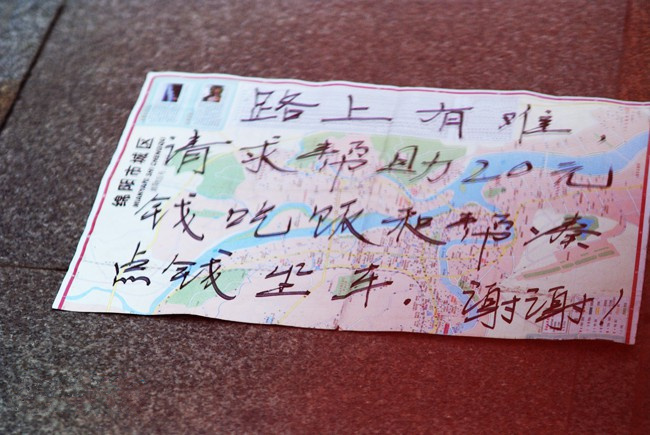 路上有难，
请求帮助20元
钱吃饭和帮凑
点钱坐车．谢谢！
绵阳市城区